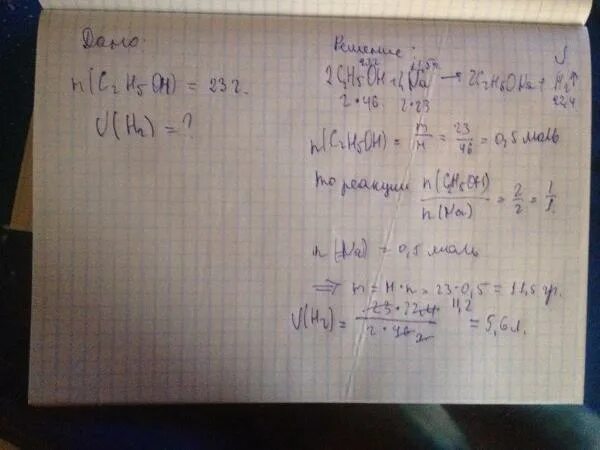 Дано:
n(C₂H₅OH) = 23 г.
V(H₂) = ?
Решение:
23г 11,5г V
2C₂H₅OH + 2Na → 2C₂H₅ONa + H₂↑
2·46 2·23 22,4
n(C₂H₅OH) = m/M = 23/46 = 0,5 моль
по реакции n(C₂H₅OH)/n(Na) = 2/2 = 1/1
n(Na) = 0,5 моль
⇒ m = M·n = 23·0,5 = 11,5 гр.
V(H₂) = 23·22,4 11,2 / 2·46 2 = 5,6 л.